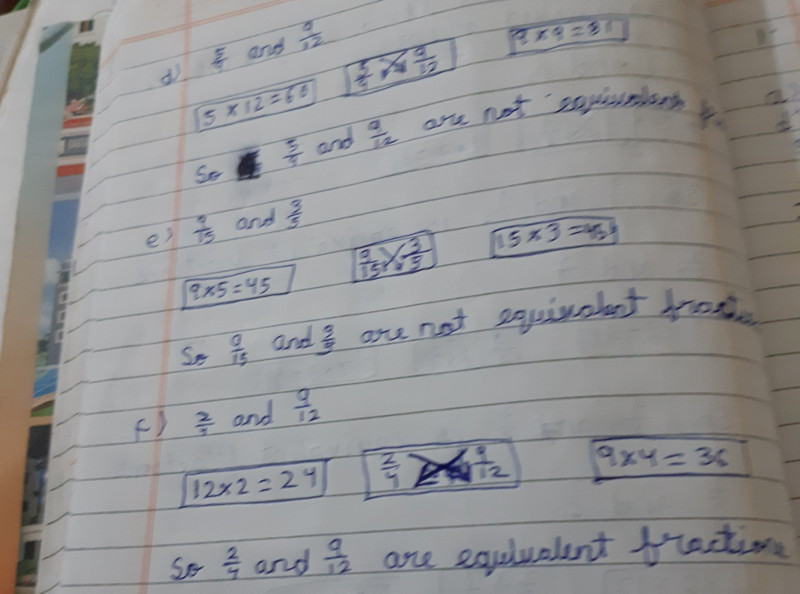 d) 5/9 and 9/12
5 × 12 = 60 5/9 9/12 9 × 9 = 81
So 5/9 and 9/12 are not equivalent
e) 9/15 and 3/5
9×5=45 9/15 3/5 15×3=45
So 9/15 and 3/5 are not equivalent fraction
f) 2/4 and 9/12
12×2=24 2/4 9/12 9×4=36
So 2/4 and 9/12 are equivalent fractions